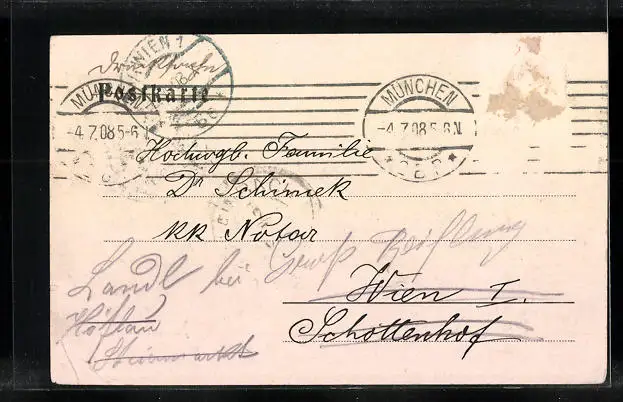 Drucksache
WIEN 1
Postkarte
MÜNCHEN
-4.7.08 5-6
MÜNCHEN
-4.7.08 5-6 N
Hochwgb. Familie
Dr Schimek
kk Notar
Landl bei Groß Reifling
Wien I.
Schottenhof
Steiermark